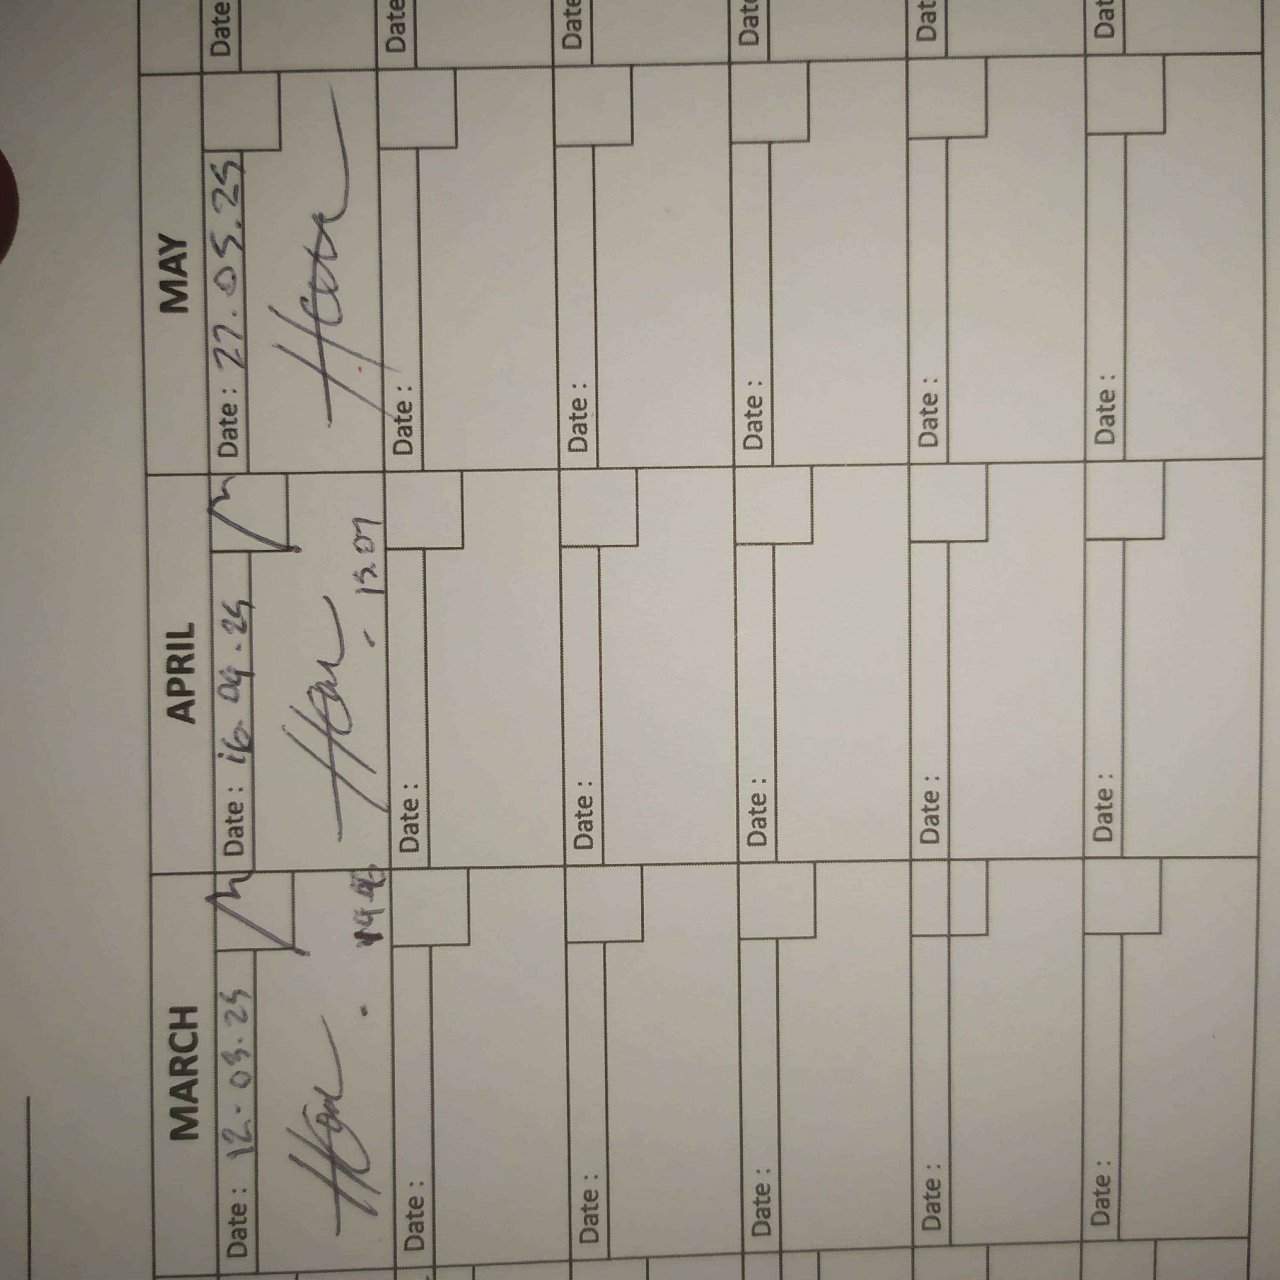 MARCH APRIL MAY
Date : 12.03.25 Date : 16.04.25 Date : 27.05.25 Date
15.07
Date : Date : Date : Date
Date : Date : Date : Date
Date : Date : Date : Date
Date : Date : Date : Dat
Date : Date : Date : Dat